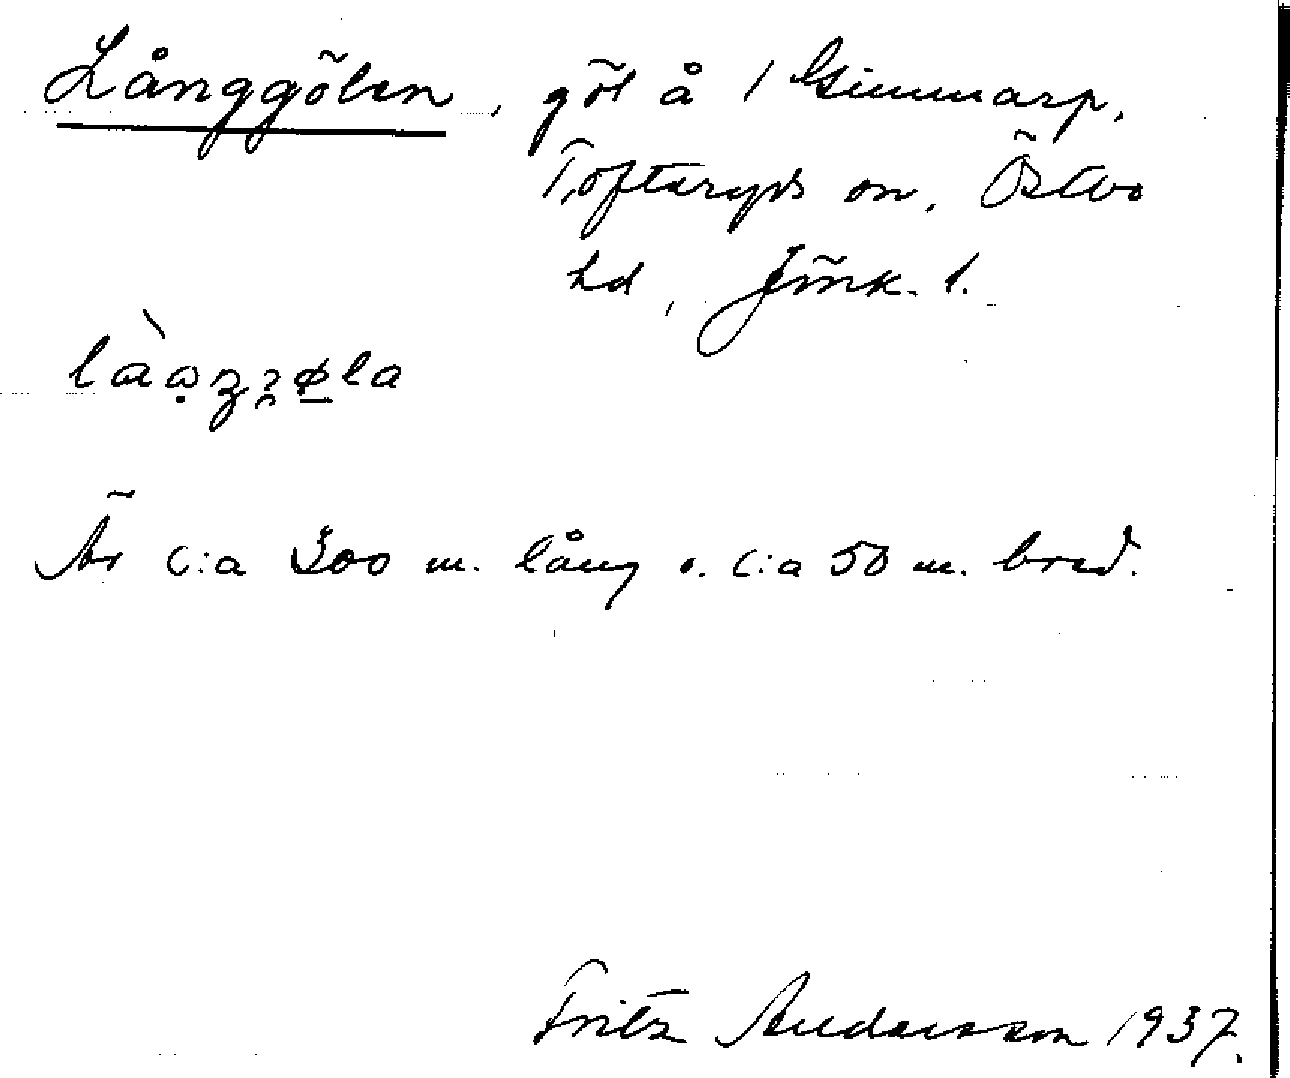 Långgölen, göl å 1 Gimmarp,
Tofteryds sn, Östbo
hd, Jönk. l.
Är c:a 300 m. lång o. c:a 50 m. bred.
Fritz Andersson 1937.